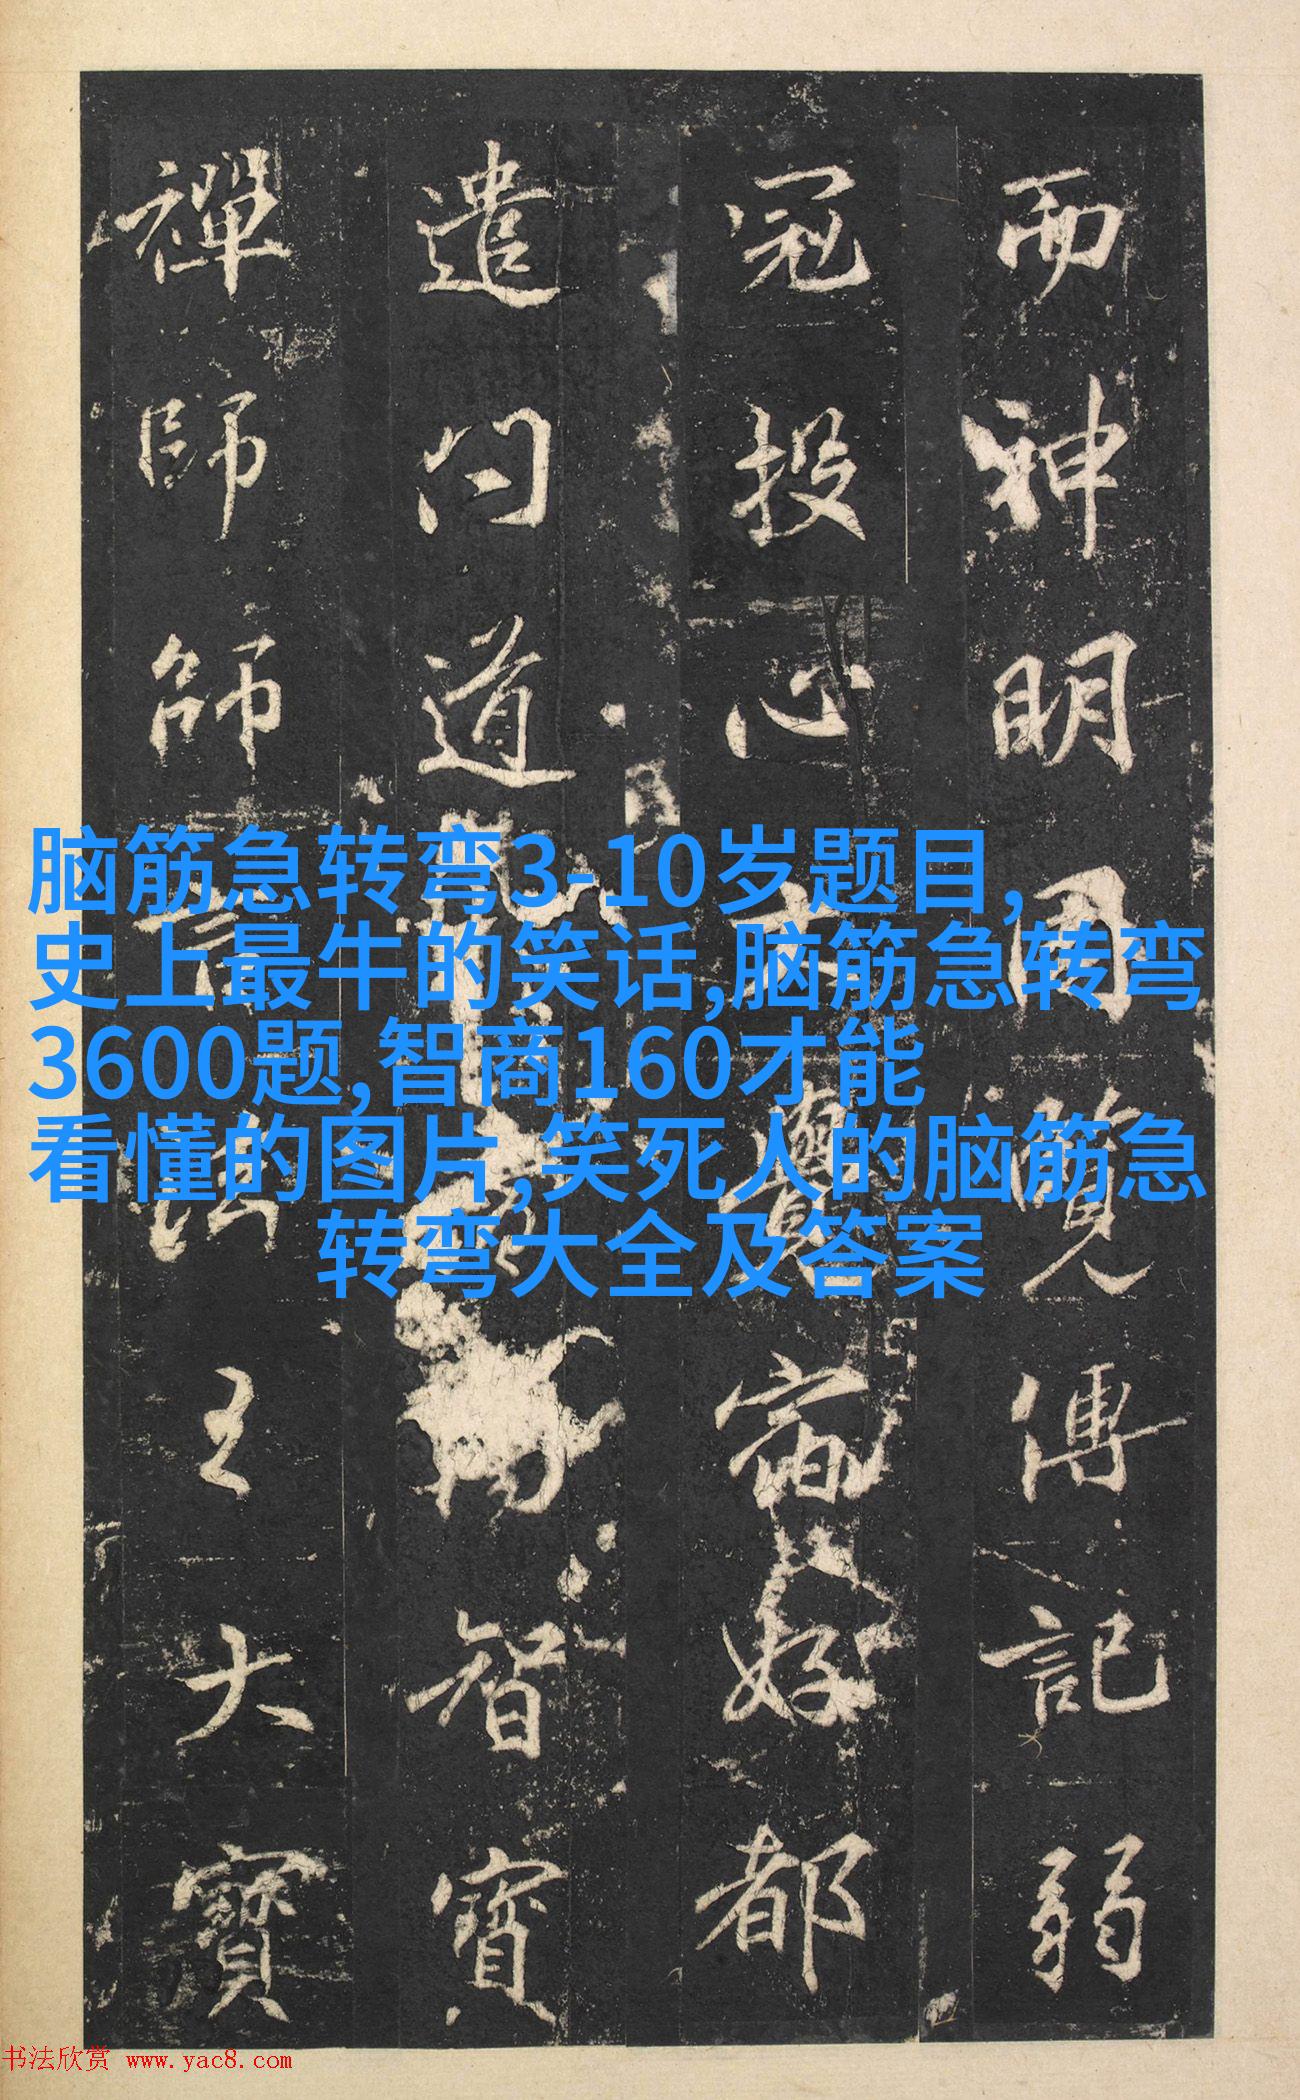 而神明周覽傳記弱
冠投心
宿好都
遣問道
智寶
禪師師
王大寶
脑筋急转弯3-10岁题目,
史上最牛的笑话,脑筋急转弯
3600题,智商160才能
看懂的图片,笑死人的脑筋急
转弯大全及答案
书法欣赏 www.yac8.com